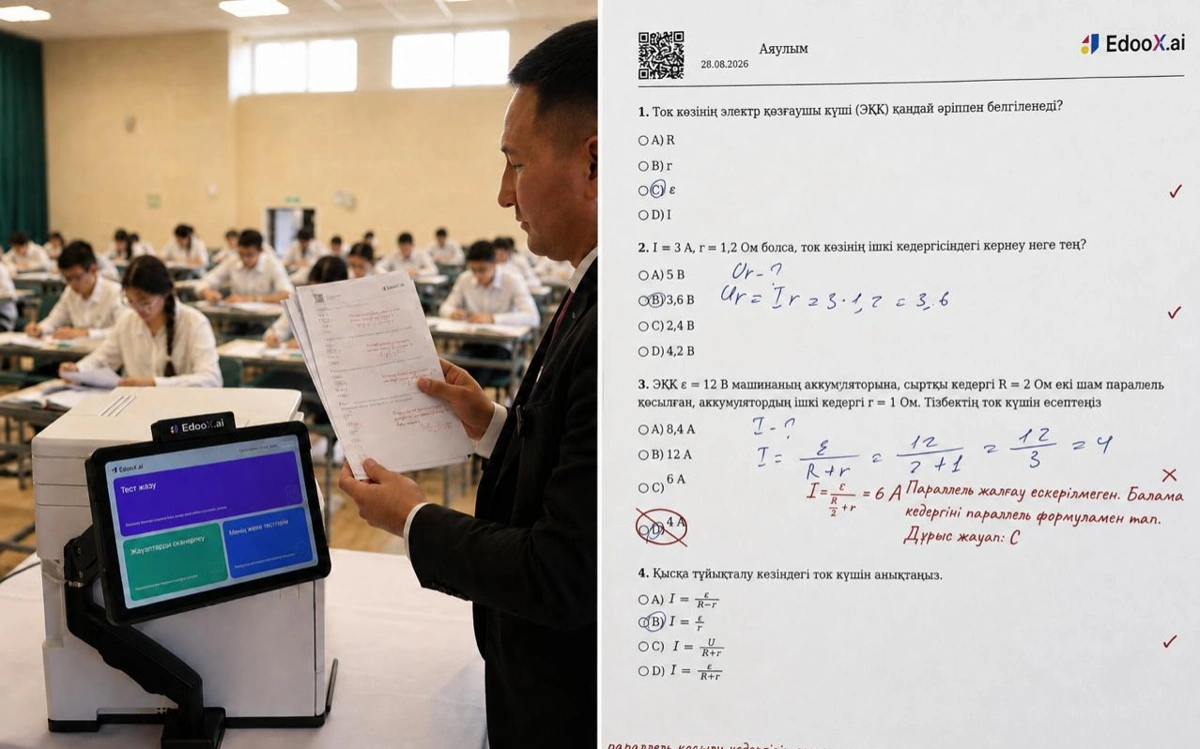 EdooX.ai
EdooX.ai
Тест жазу
Жауаптарды сканерлеу
Менің жеке тесттерім
Аяулым
28.08.2026
EdooX.ai
1. Ток көзінің электр қозғаушы күші (ЭҚК) қандай әріппен белгіленеді?
A) R
B) r
C) ε
D) I
2. I = 3 А, r = 1,2 Ом болса, ток көзінің ішкі кедергісіндегі кернеу неге тең?
A) 5 В
B) 3,6 В
C) 2,4 В
D) 4,2 В
Ur - ?
Ur = I r = 3 · 1,2 = 3,6
3. ЭҚК ε = 12 В машинаның аккумляторына, сыртқы кедергі R = 2 Ом екі шам параллель
қосылған, аккумулятордың ішкі кедергі r = 1 Ом. Тізбектің ток күшін есептеңіз
A) 8,4 А
B) 12 А
C) 6 А
D) 4 А
I - ?
I = ε/(R+r) = 12/(2+1) = 12/3 = 4
I = ε/(R/2 + r) = 6 А Параллель жалғау ескерілмеген. Балама
кедергіні параллель формуламен тап.
Дұрыс жауап: С
4. Қысқа тұйықталу кезіндегі ток күшін анықтаңыз.
A) I = ε/(R−r)
B) I = ε/r
C) I = U/(R+r)
D) I = ε/(R+r)